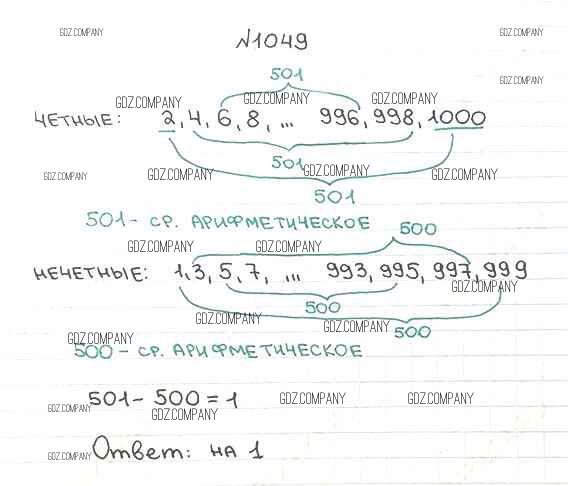 GDZ.COMPANY GDZ.COMPANY
№1049
501 GDZ.COMPANY
GDZ.COMPANY GDZ.COMPANY GDZ.COMPANY
ЧЕТНЫЕ: 2, 4, 6, 8, ... 996, 998, 1000
501 GDZ.COMPANY
GDZ.COMPANY GDZ.COMPANY GDZ.COMPANY
501
501 - СР. АРИФМЕТИЧЕСКОЕ 500
GDZ.COMPANY GDZ.COMPANY
НЕЧЕТНЫЕ: 1, 3, 5, 7, ... 993, 995, 997, 999
GDZ.COMPANY
500
GDZ.COMPANY GDZ.COMPANY
500
GDZ.COMPANY
500 - СР. АРИФМЕТИЧЕСКОЕ
501 - 500 = 1 GDZ.COMPANY GDZ.COMPANY
GDZ.COMPANY GDZ.COMPANY
Ответ: НА 1
GDZ.COMPANY